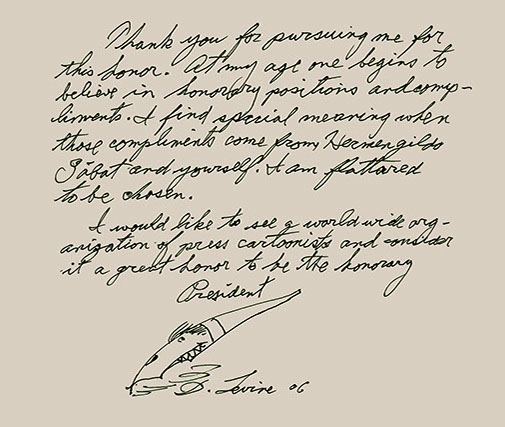 Thank you for pursuing me for
this honor. At my age one begins to
believe in honorary positions and comp-
liments. I find special meaning when
those compliments come from Hermengildo
Sábat and yourself. I am flattared
to be chosen.
I would like to see a world wide org-
anization of press cartoonists and consider
it a great honor to be the honorary
President
D. Levine 06